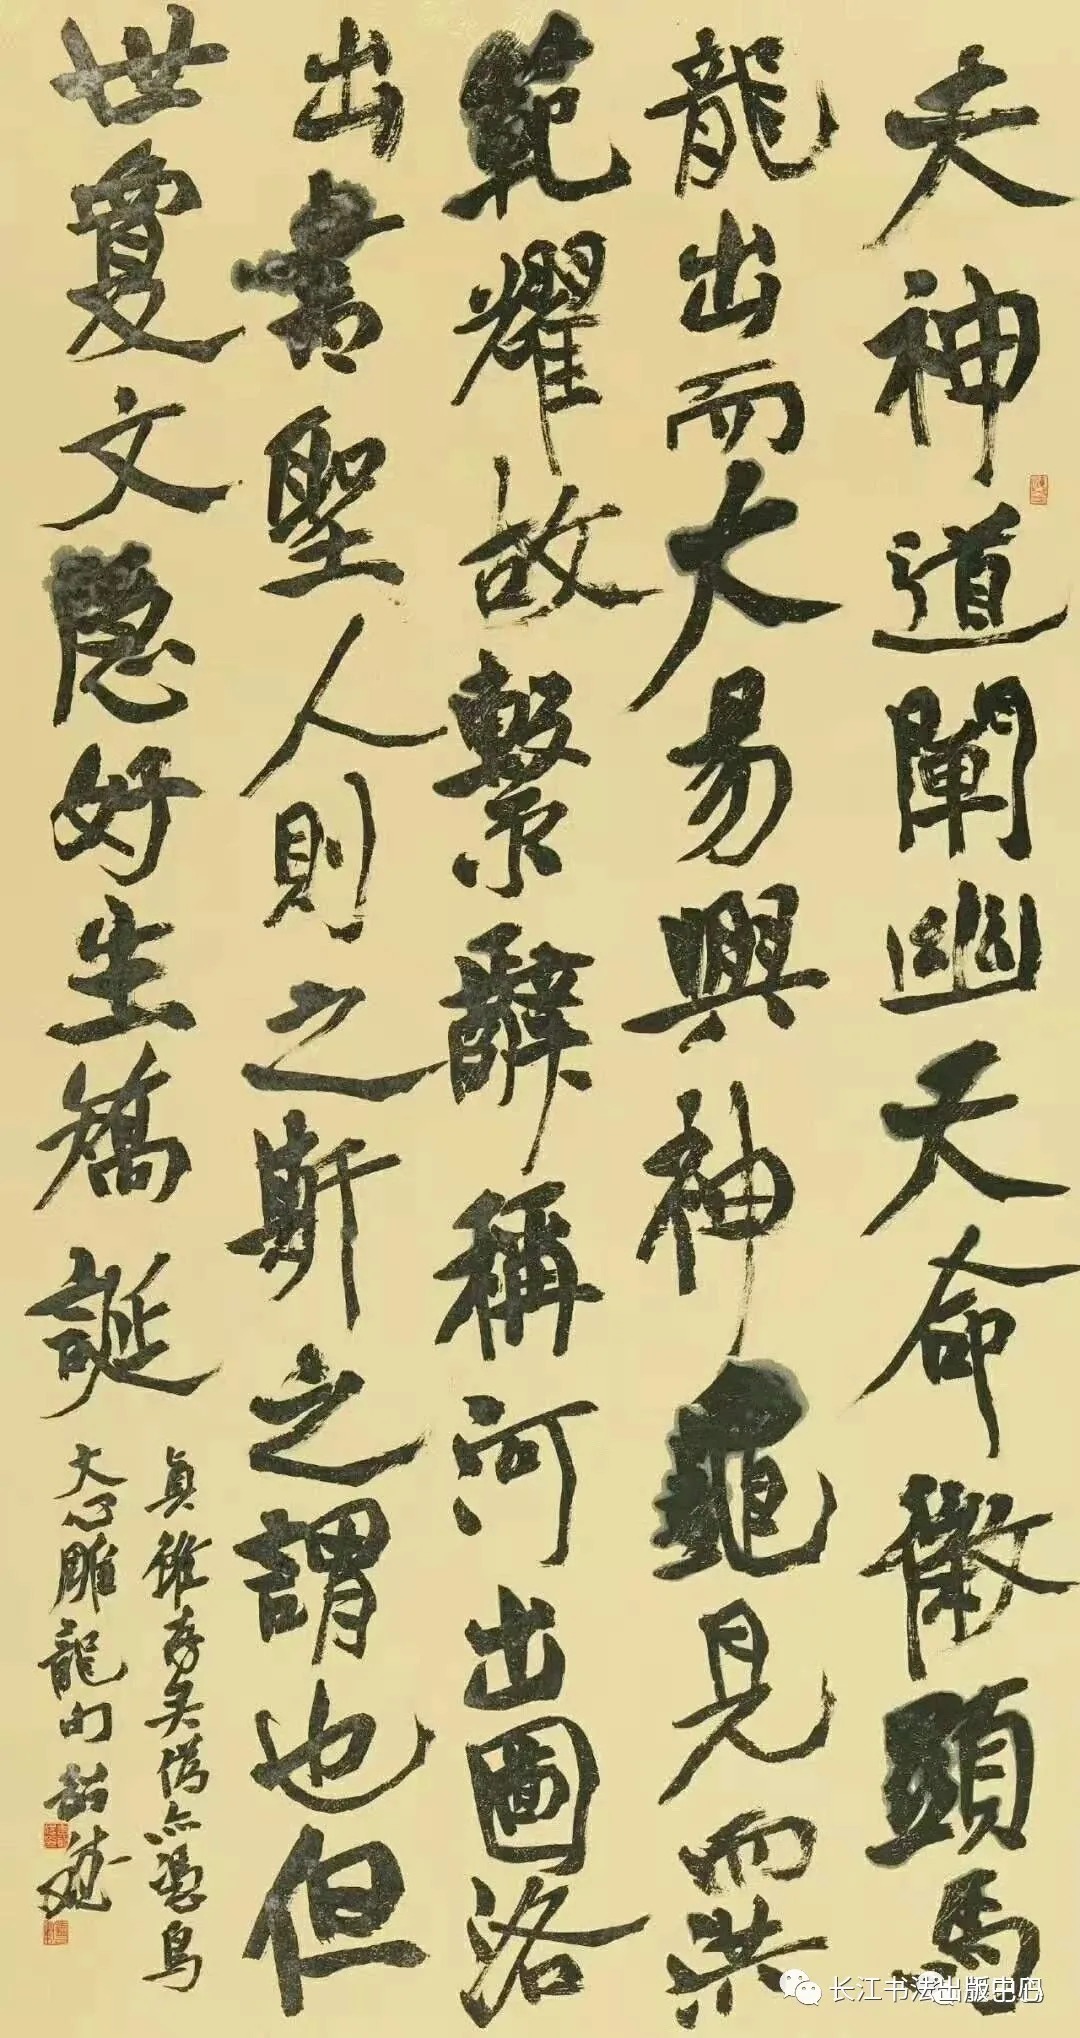 夫神道闡幽天命微顯馬
龍出而大易興神龜見而洪
範耀故繫辭稱河出圖洛
出書聖人則之斯之謂也但
世夐文隱好生矯誕
真雖存矣偽亦憑焉
文心雕龍句
长江书法出版中心